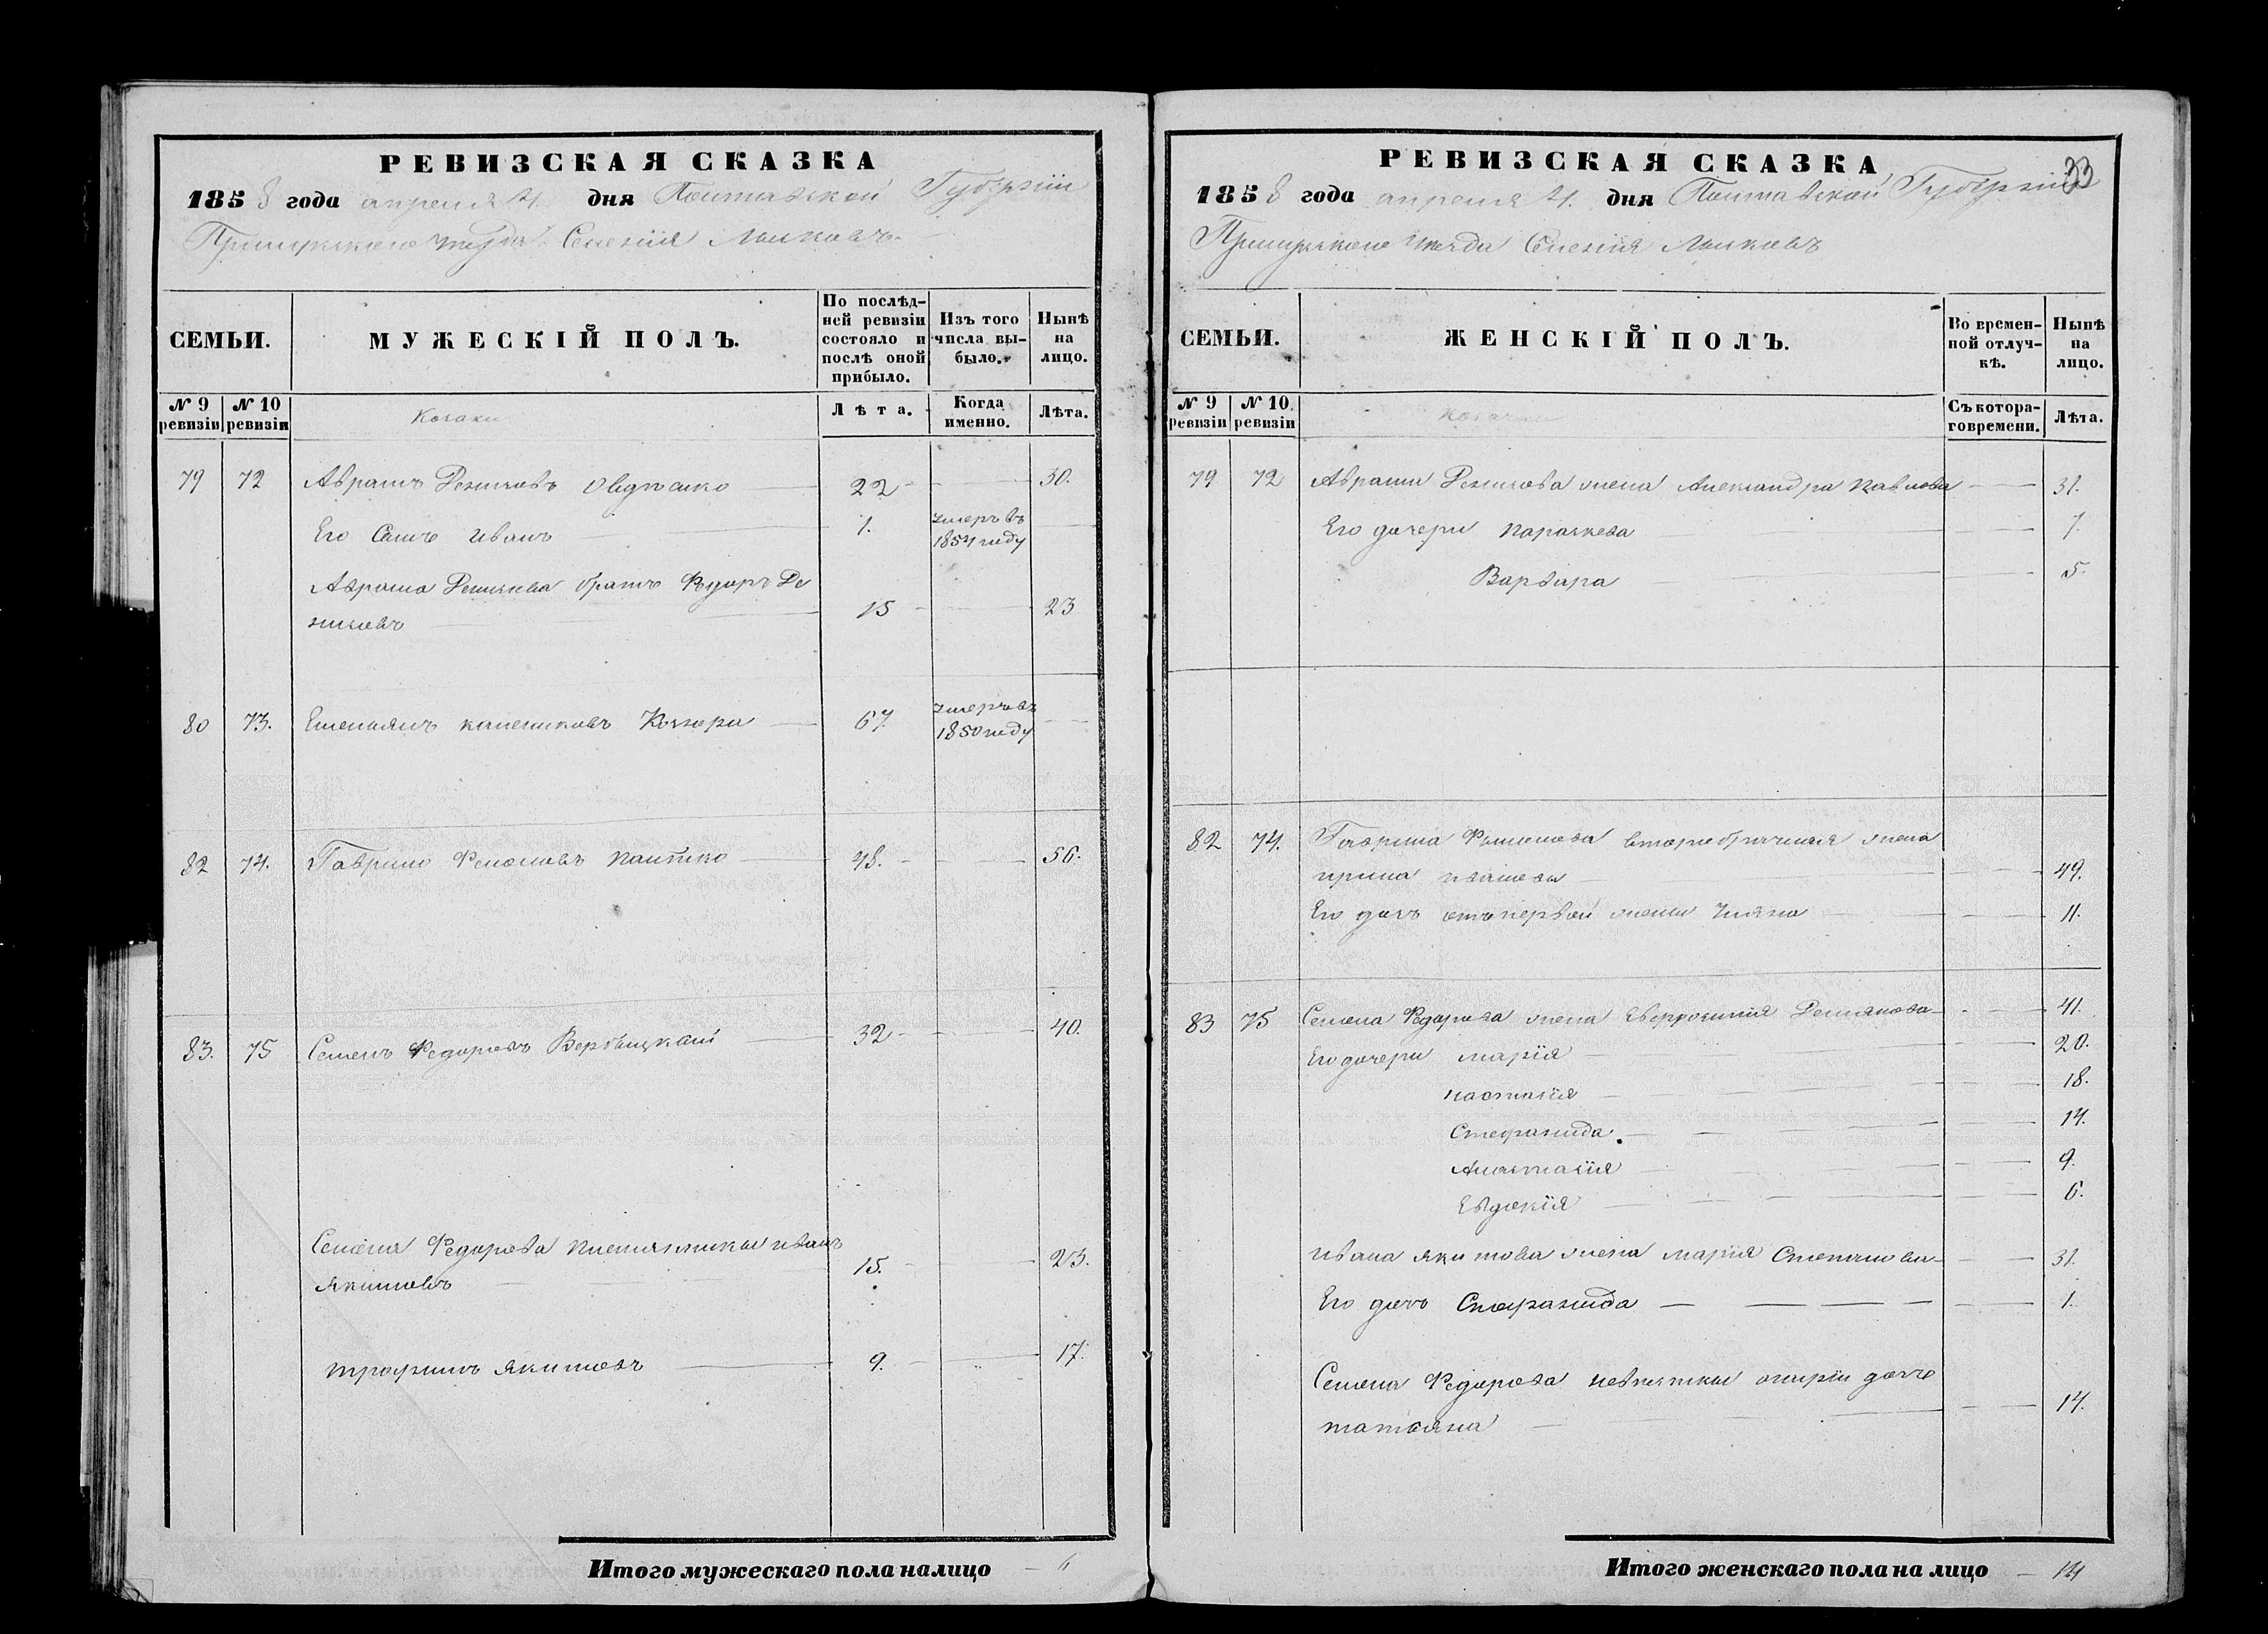 РЕВИЗСКАЯ СКАЗКА
1858 года апреля 4. дня Полтавской Губерніи
Прилукскаго уезда Селенія
СЕМЬИ.
МУЖЕСКІЙ ПОЛЪ.
По послѣд-
ней ревизіи
состояло и
послѣ оной
прибыло.
Изъ того
числа вы-
было.
Нынѣ
на
лицо.
№ 9
ревизіи
№ 10
ревизіи
Козаки
Лѣта.
Когда
именно.
Лѣта.
79 72 Аврамъ Денисовъ 22 30.
Его Сынъ Иванъ 1. умеръ въ
1854 году
Аврама Денисова братъ Федоръ Де
нисовъ 15 23
80 73. Емельянъ 67. умеръ въ
1850 году
82 74. Гаврило 48. 56.
83. 75 Семенъ Федоровъ Вербицкай 32 40.
Семена Федорова племянники иванъ
Якимовъ 15. 23.
трофимъ Якимовъ 9. 17.
Итого мужескаго пола налицо 6
33
РЕВИЗСКАЯ СКАЗКА
1858 года апреля 4. дня Полтавской Губерніи
Прилукскаго уезда Селенія
СЕМЬИ.
ЖЕНСКІЙ ПОЛЪ.
Во времен-
ной отлуч-
кѣ.
Нынѣ
на
лицо.
№ 9
ревизіи
№ 10.
ревизіи
Козачки
Съ котора-
го времени.
Лѣта.
79 72 Аврама Денисова жена Александра Павлова 31.
Его дочери параскева 7.
Варвара 5.
82 74. Гаврила второбрачная жена
ирина 49.
Его дочь отъ первой жены Уляна 11.
83 75 Семена Федорова жена Демянова 41.
Его дочери марія 20.
настасія 18.
Стефанида. 14.
Анастасія 9.
Евдокія 6.
ивана якимова жена марія Степанова 31.
Его дочь Стефанида 1.
Семена Федорова невѣстки дочь
татьяна 14.
Итого женскаго пола на лицо 14